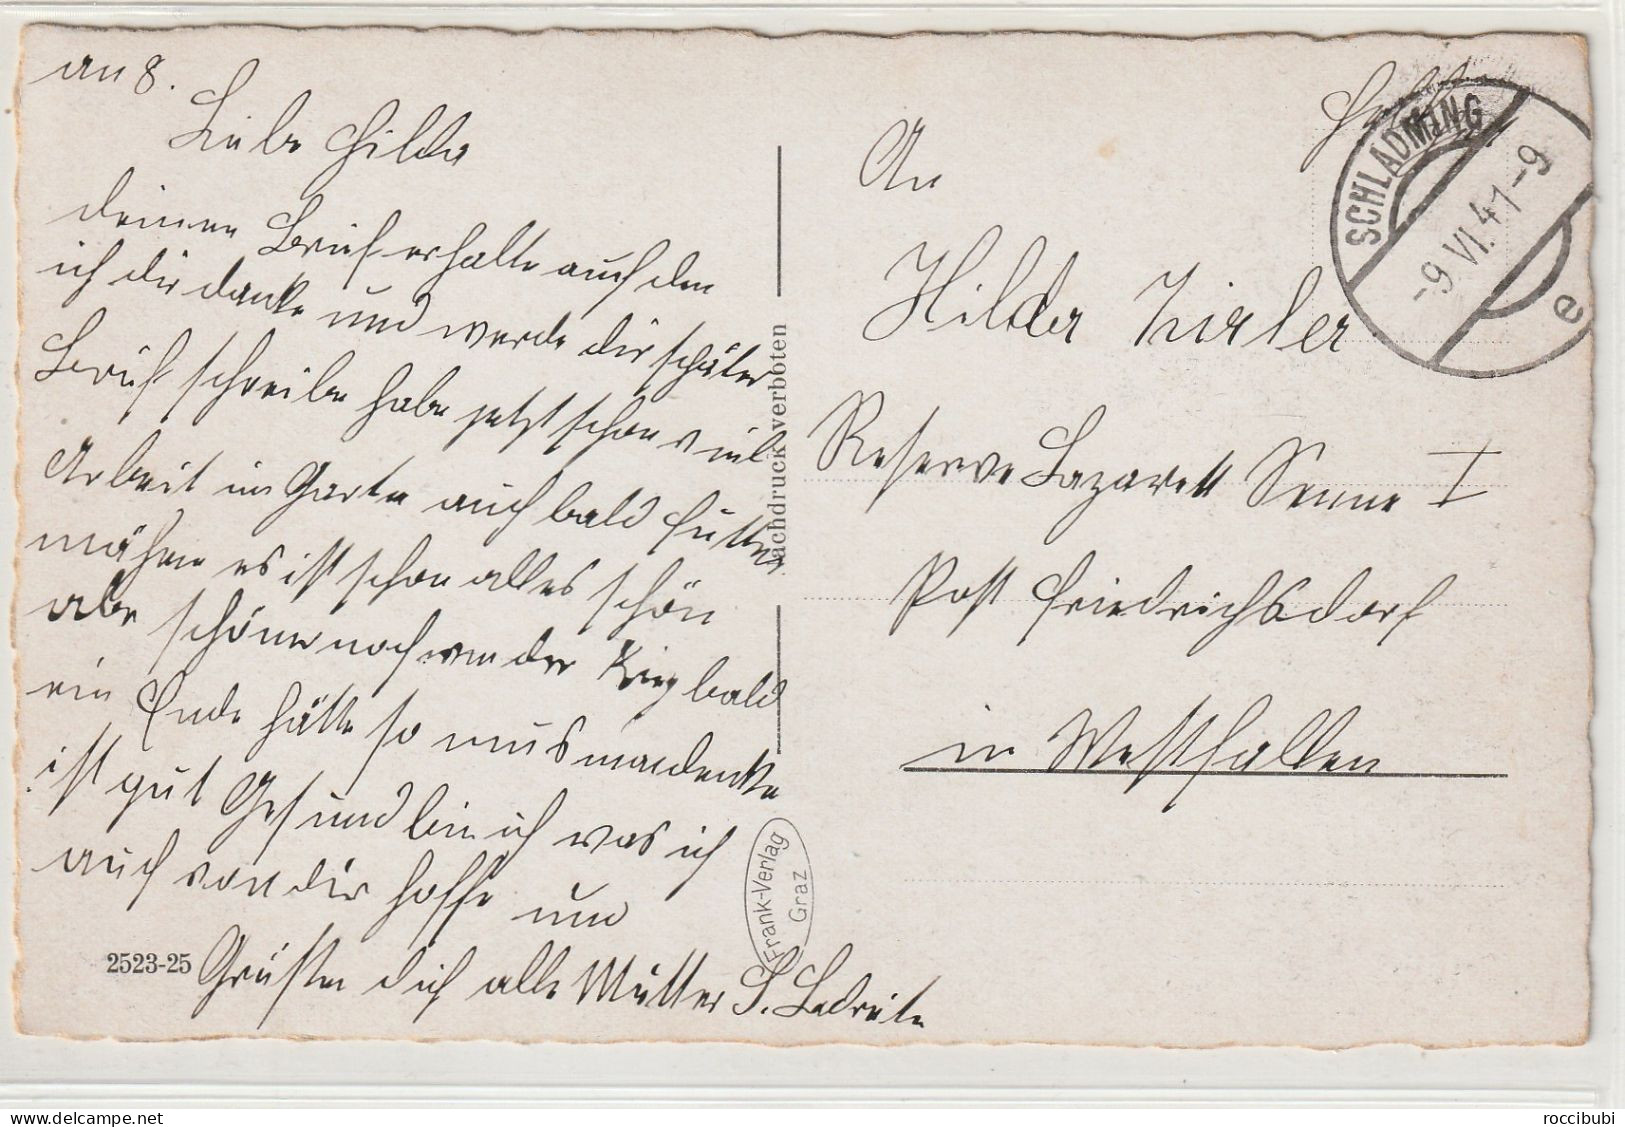 am 8.
Liebe Hilda
deinen Brief erhalte auch den
ich dir danke und werde dir später
Brief schreibe habe jetzt schon viel
Arbeit im Garte auch bald Futter
mähen es ist schon alles schön
aber schöner noch wen der Krieg bald
ein Ende hätte so mus man denke
ist gut Gesund bin ich was ich
auch von dir hoffe und
Grüsten dich alle Mutter S.
2523-25
Nachdruck verboten
Frank-Verlag
Graz
SCHLADMING
-9.VI.41-9
e
An
Hilda Zirler
Reserve Lazarett Senne I
Post Friedrichsdorf
in Westfallen
roccibubi